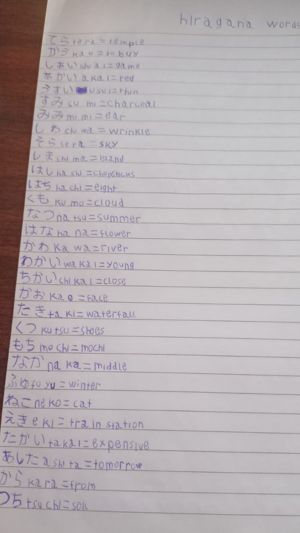 hiragana words
てら tera = temple
かう ka u = to buy
しあい shi ai = game
あかい a ka i = red
うすい usui = thin
すみ su mi = charcoal
みみ mi mi = ear
しわ shi wa = wrinkle
そら sora = sky
しま shi ma = island
はし ha shi = chopsticks
はち ha chi = eight
くも ku mo = cloud
なつ na tsu = summer
はな ha na = flower
かわ ka wa = river
わかい wa ka i = young
ちかい chi ka i = close
かお ka o = face
たき ta ki = waterfall
くつ ku tsu = shoes
もち mo chi = mochi
なか na ka = middle
ふゆ fu yu = winter
ねこ ne ko = cat
えき e ki = train station
たかい ta ka i = expensive
あした a shi ta = tomorrow
から ka ra = from
つち tsu chi = soil